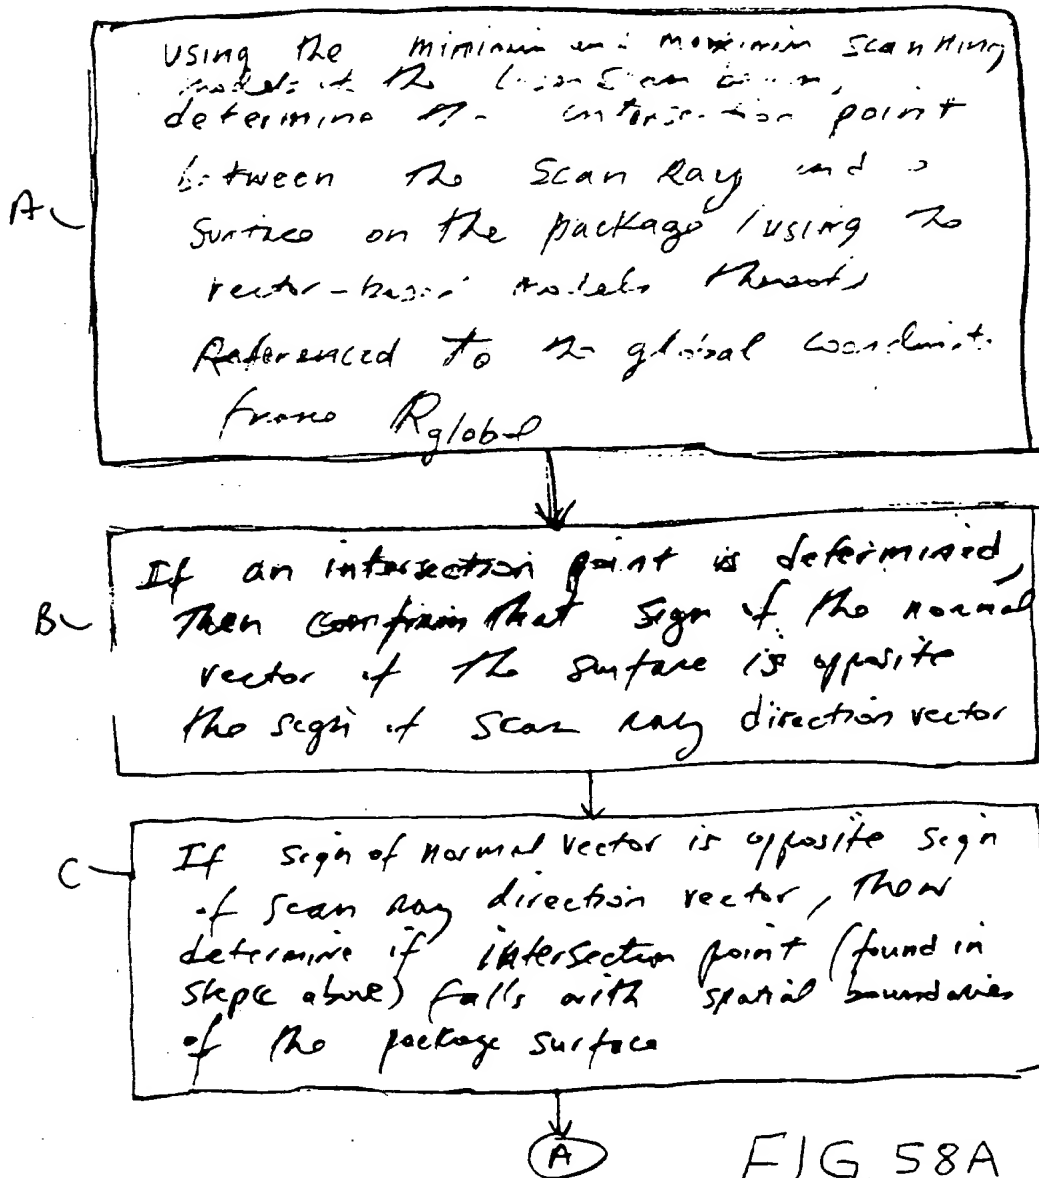 Using the minimum and maximum scanning
models of the laser scan beam,
determine the intersection point
between the Scan Ray and a
Surface on the package (using the
vector-based models thereof)
Referenced to the global coordinate
frame Rglobal
A
If an intersection point is determined,
then confirm that sign of the normal
vector of the surface is opposite
the sign of scan ray direction vector
B
If sign of normal vector is opposite sign
of scan ray direction vector, then
determine if intersection point (found in
above) falls with spatial boundaries
of the package surface
C
A
FIG 58A